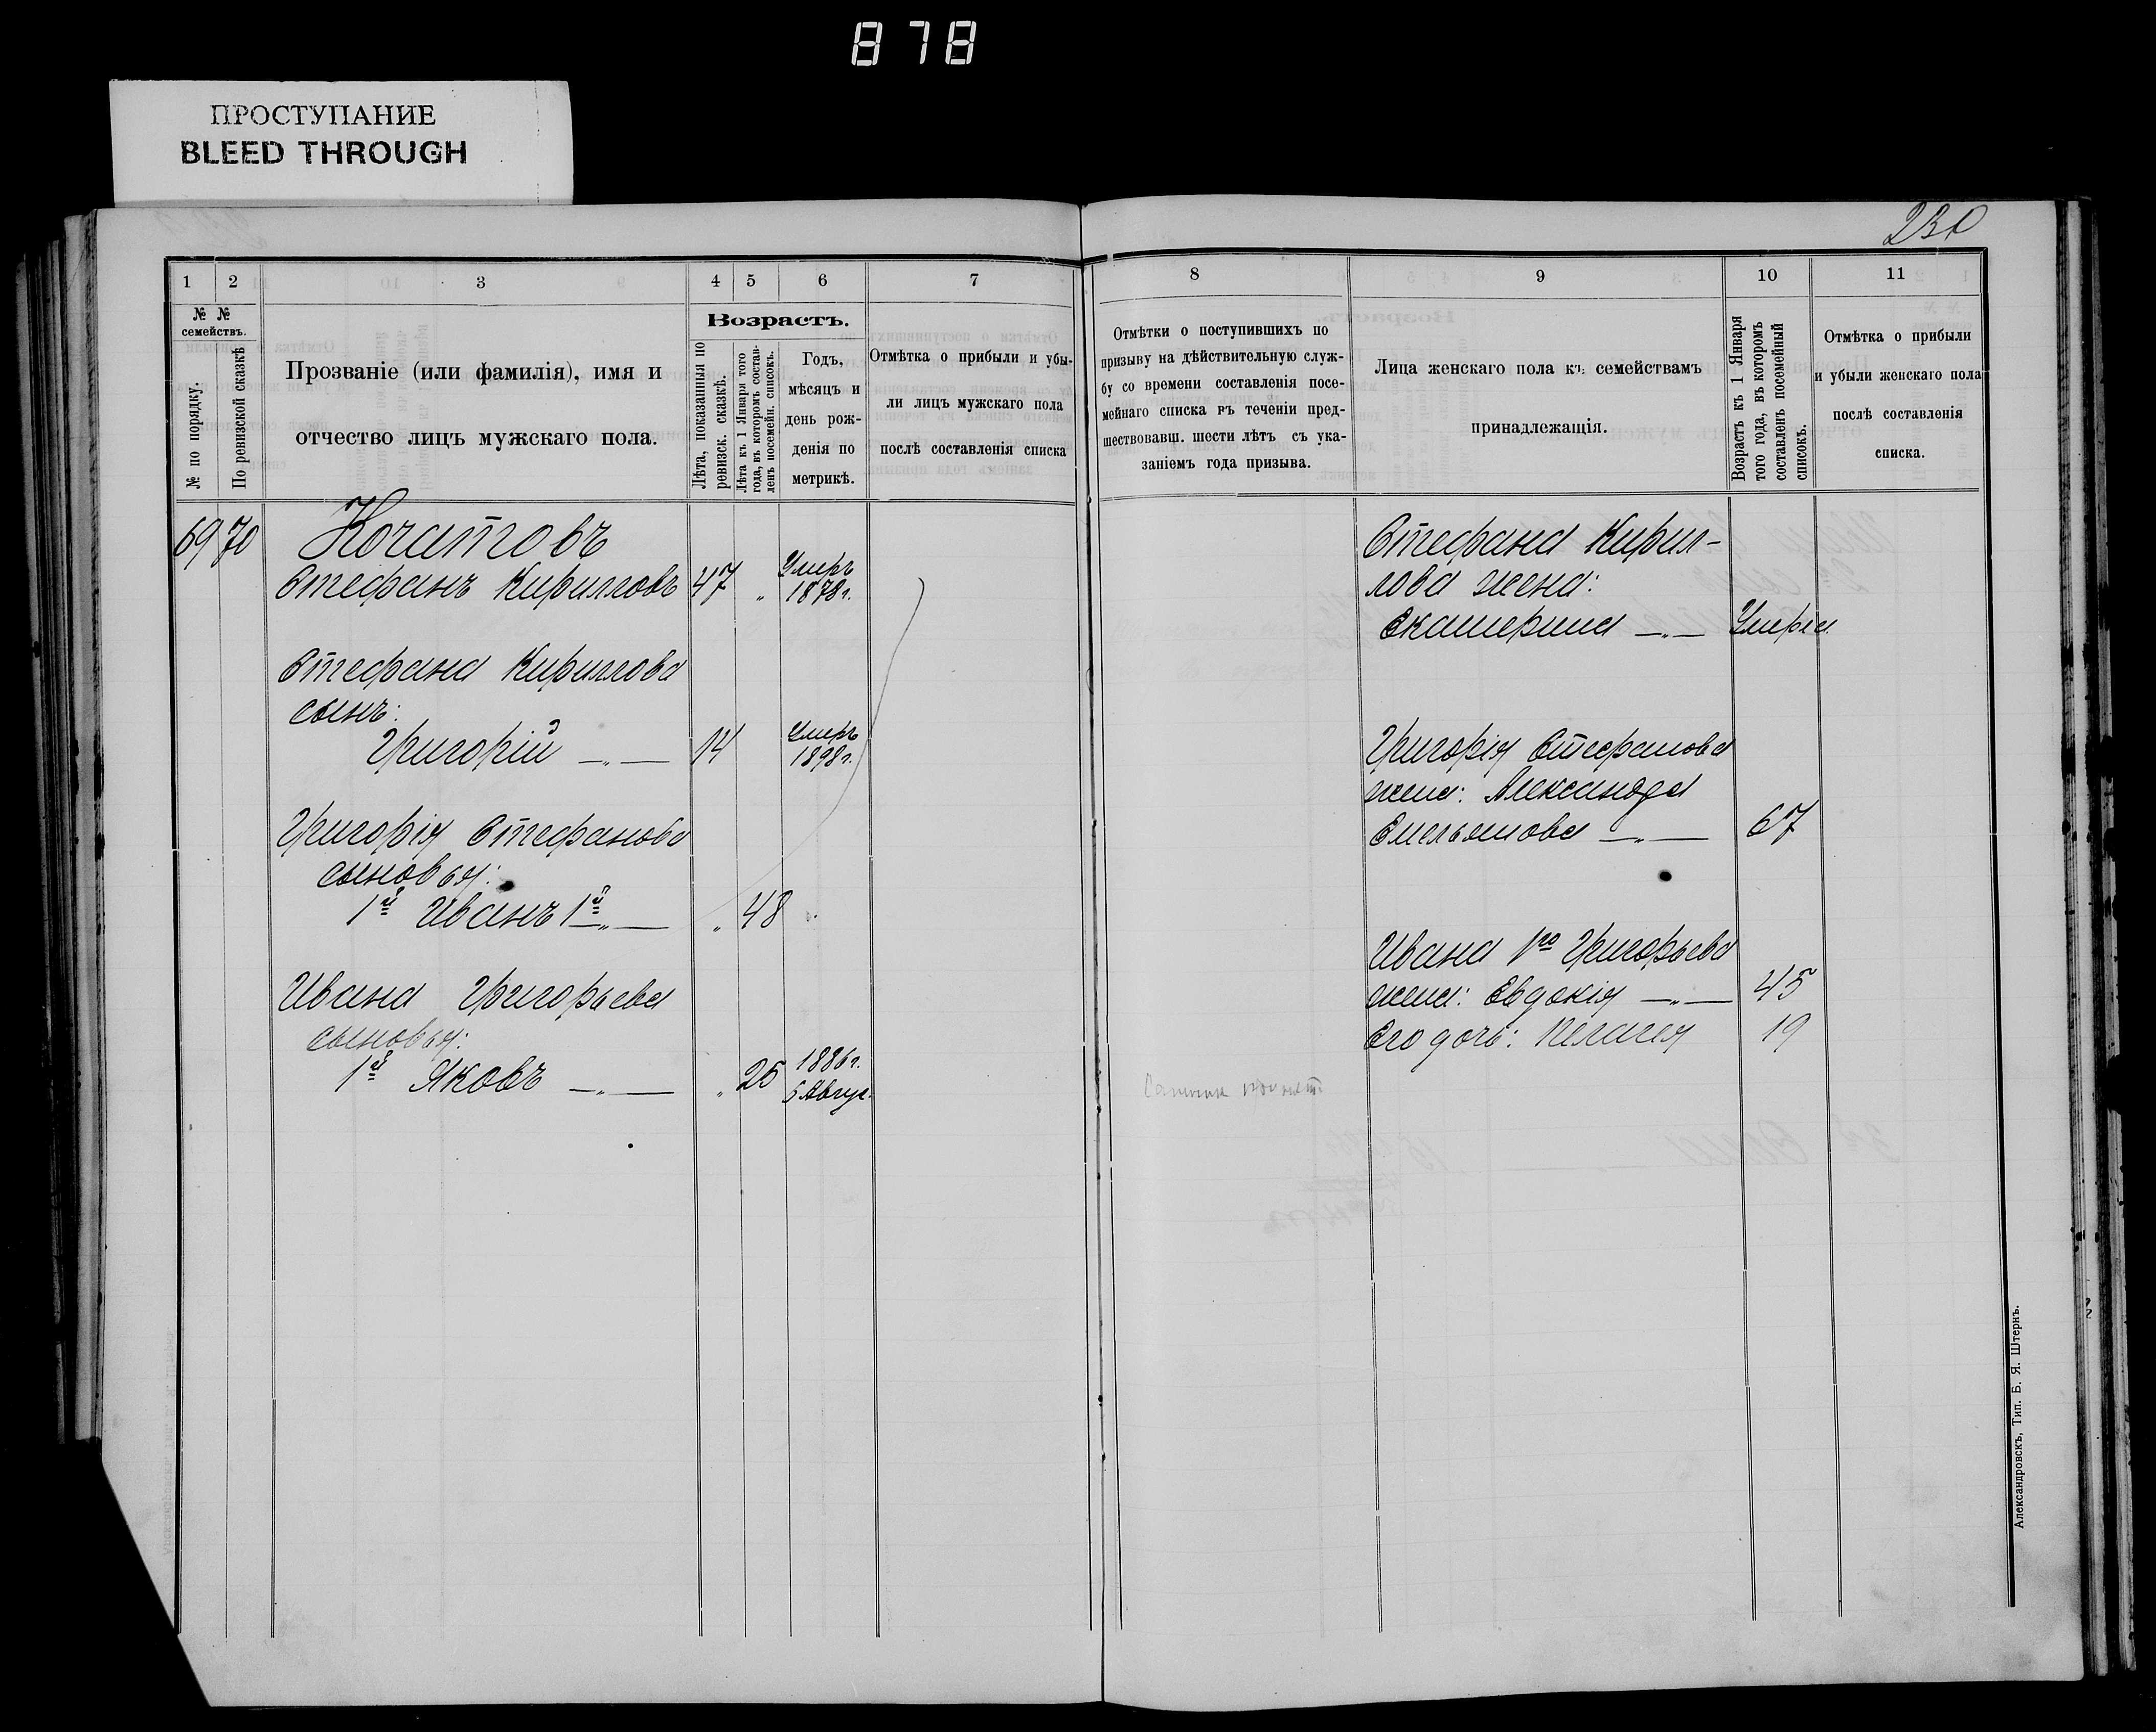 878
ПРОСТУПАНИЕ
BLEED THROUGH
230
1 2 3 4 5 6 7
№ № семействъ.
№ по порядку.
По ревизской сказкѣ
Прозваніе (или фамилія), имя и
отчество лицъ мужскаго пола.
Возрастъ.
Лѣта, показанныя по
ревизск. сказкѣ.
Лѣта къ 1 Января того
года, въ которомъ состав-
ленъ посемейн. списокъ.
Годъ,
мѣсяцъ и
день рож-
денія по
метрикѣ.
Отмѣтка о прибыли и убы-
ли лицъ мужскаго пола
послѣ составленія списка
69 70 Кочатовъ
Стефанъ Кирилловъ 47 „ Умеръ
1878 г.
Стефана Кириллова
сынъ:
Григорій —„— 14 Умеръ
1898 г.
Григорія Стефанова
сыновья:
1й Иванъ 1й —„— „ 48
Ивана Григорьева
сыновья:
1й Яковъ —„— „ 25 1886 г.
6 Авгус.
8 9 10 11
Отмѣтки о поступившихъ по
призыву на дѣйствительную служ-
бу со времени составленія посе-
мейнаго списка въ теченіи пред-
шествовавш. шести лѣтъ съ ука-
заніемъ года призыва.
Лица женскаго пола къ семействамъ
принадлежащія.
Возрастъ къ 1 Января
того года, въ которомъ
составленъ посемейный
списокъ.
Отмѣтка о прибыли
и убыли женскаго пола
послѣ составленія
списка.
Стефана Кирил-
лова жена:
Екатерина —„— Умерла
Григорія Стефанова
жена: Александра
Емельянова —„— 67
Ивана 1го Григорьева
жена: Евдокія —„— 45
Его дочь: Пелагея 19
Александровскъ, Тип. Б. Я. Штернъ.